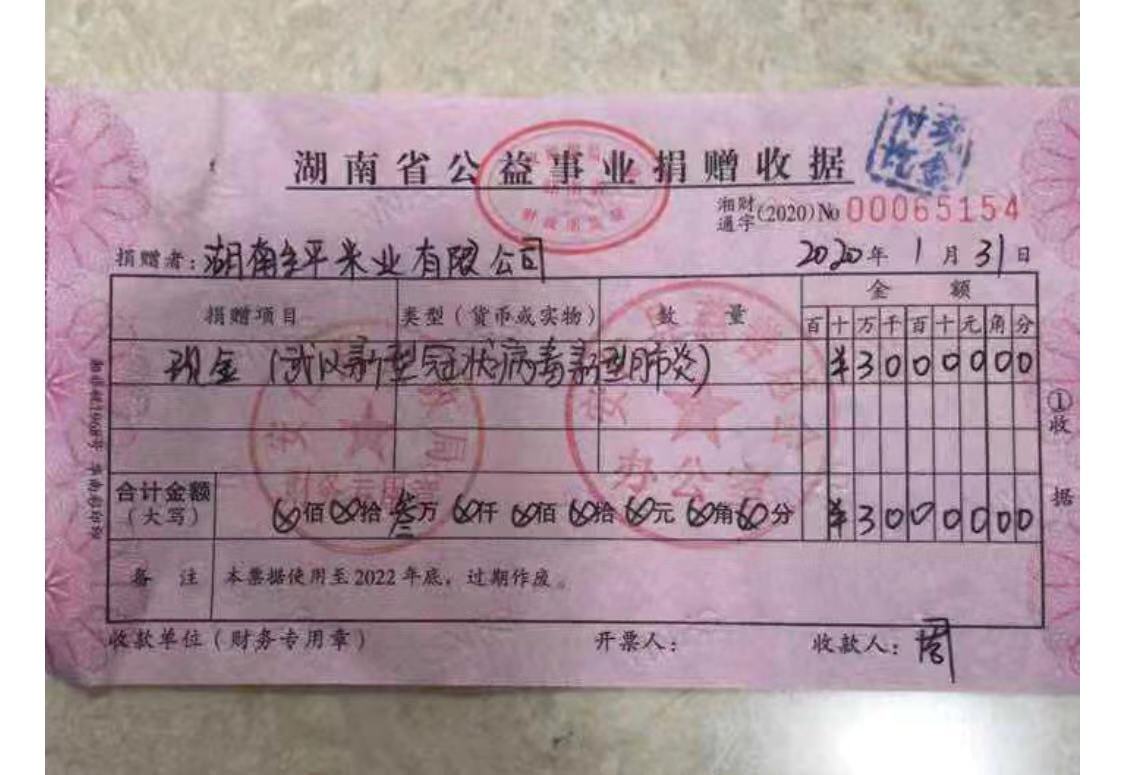 湖南省公益事业捐赠收据
付讫
湘财通字(2020)No 00065154
捐赠者：湖南 平米业有限公司 2020年1月31日
捐赠项目 类型（货币或实物） 数量 金额
百十万千百十元角分
现金（武汉新型冠状病毒新型肺炎） ¥3000000
合计金额（大写） 佰 拾叁万 仟 佰 拾 元 角 分 ¥3000000
备注 本票据使用至2022年底，过期作废。
收款单位（财务专用章） 开票人： 收款人：周
①收据
办公室